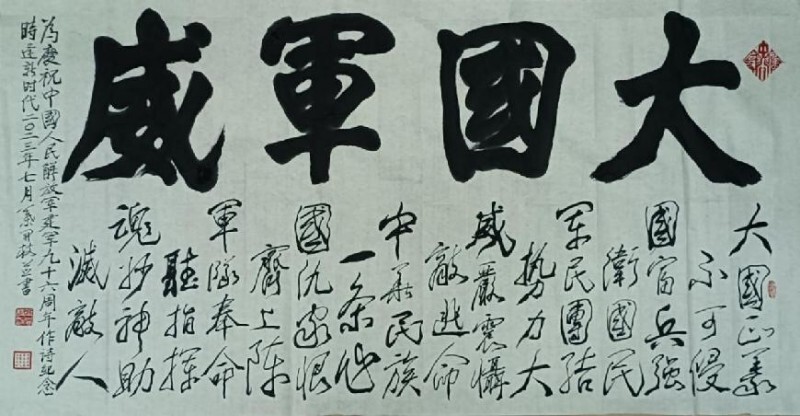 大國軍威
大國正義
不可侵
國富兵强
衛國民
軍民團结
勢力大
威嚴震懾
敵逃命
中華民族
一条心
國仇家恨
齊上阵
軍隊奉命
聽指揮
魂妙神助
滅敵人
為慶祝中國人民解放军建军九十六周年作詩紀念
時逢新时代二〇二三年七月